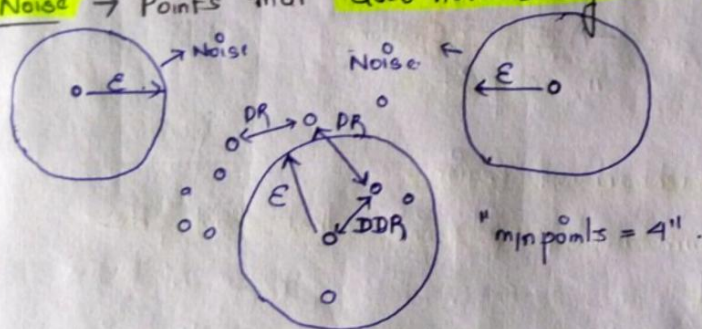 Noise → Points that
ε → Noise
Noise ← ε
DR
DR
ε
DDR
"minpoints = 4".